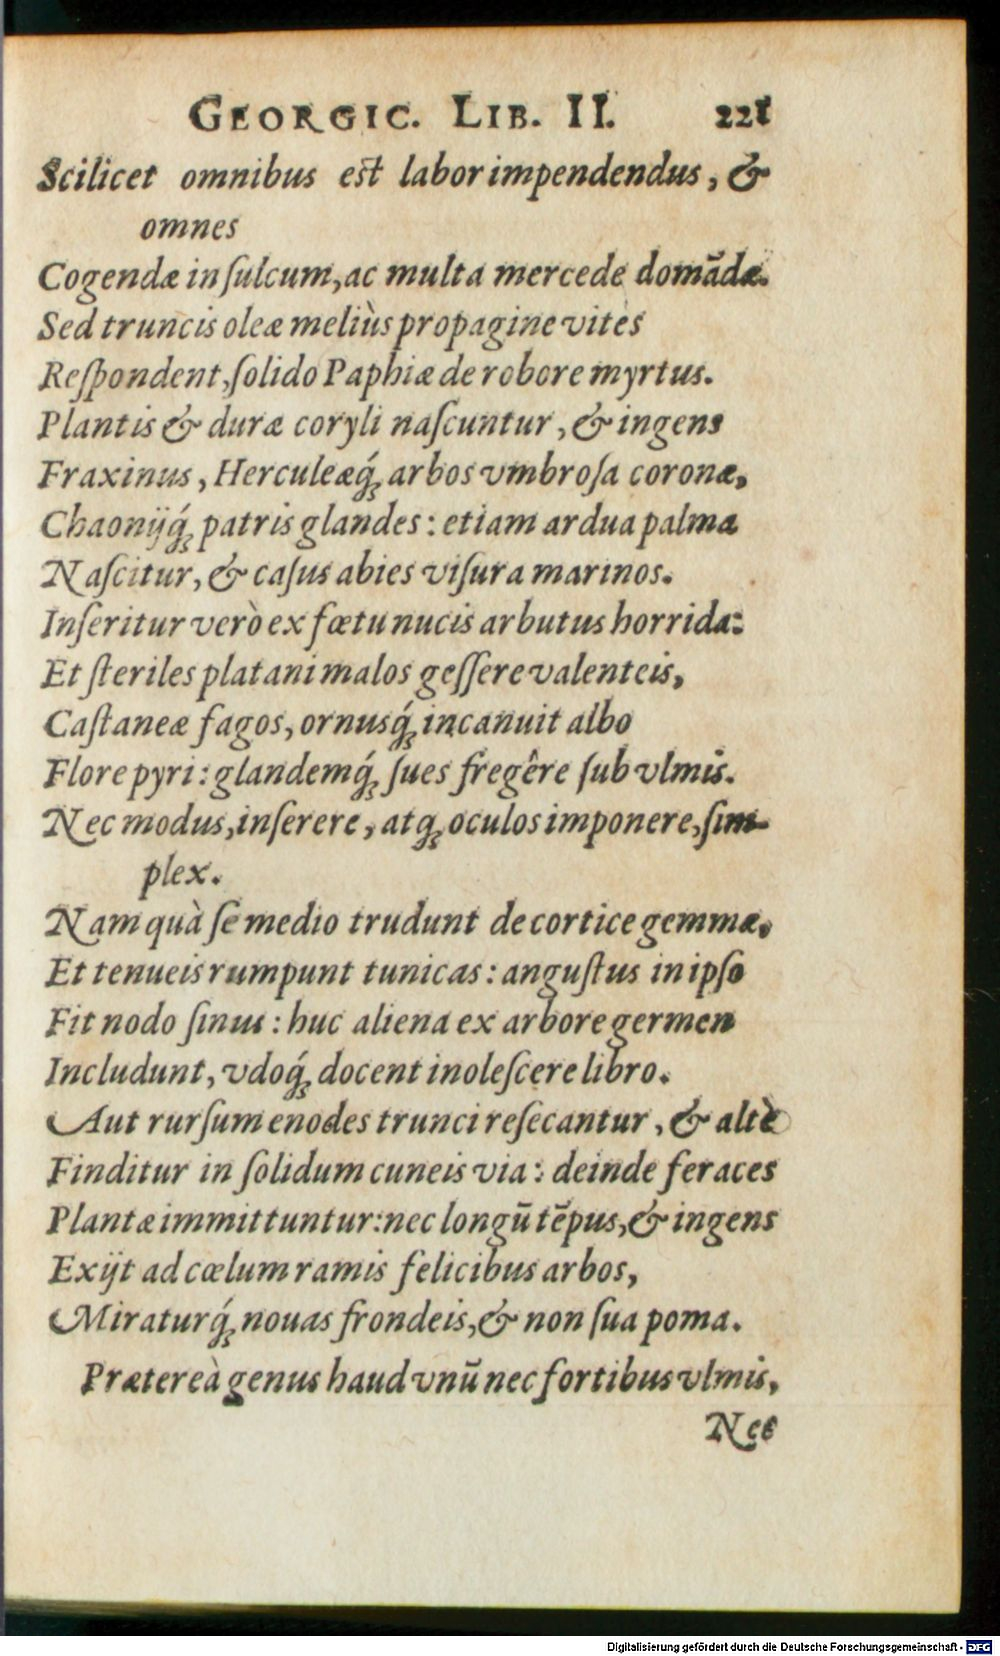 GEORGIC. LIB. II. 221
Scilicet omnibus est labor impendendus, &
omnes
Cogendæ in ſulcum, ac multa mercede domādæ.
Sed truncis oleæ meliùs propagine vites
Reſpondent, ſolido Paphiæ de robore myrtus.
Plantis & duræ coryli naſcuntur, & ingens
Fraxinus, Herculeæq́; arbos vmbroſa coronæ,
Chaonijq́; patris glandes: etiam ardua palma
Naſcitur, & caſus abies viſura marinos.
Inſeritur verò ex fœtu nucis arbutus horrida:
Et ſteriles platani malos geſſere valenteis,
Caſtaneæ fagos, ornusq́; incanuit albo
Flore pyri: glandemq́; ſues fregêre ſub vlmis.
Nec modus, inſerere, atq; oculos imponere, ſim-
plex.
Nam quà ſe medio trudunt de cortice gemmæ,
Et tenueis rumpunt tunicas: anguſtus in ipſo
Fit nodo ſinus: huc aliena ex arbore germen
Includunt, vdoq́; docent inoleſcere libro.
Aut rurſum enodes trunci reſecantur, & altè
Finditur in ſolidum cuneis via: deinde feraces
Plantæ immittuntur: nec longū tēpus, & ingens
Exijt ad cœlum ramis felicibus arbos,
Miraturq́; nouas frondeis, & non ſua poma.
Prætereà genus haud vnū nec fortibus vlmis,
Nec
Digitalisierung gefördert durch die Deutsche Forschungsgemeinschaft - DFG